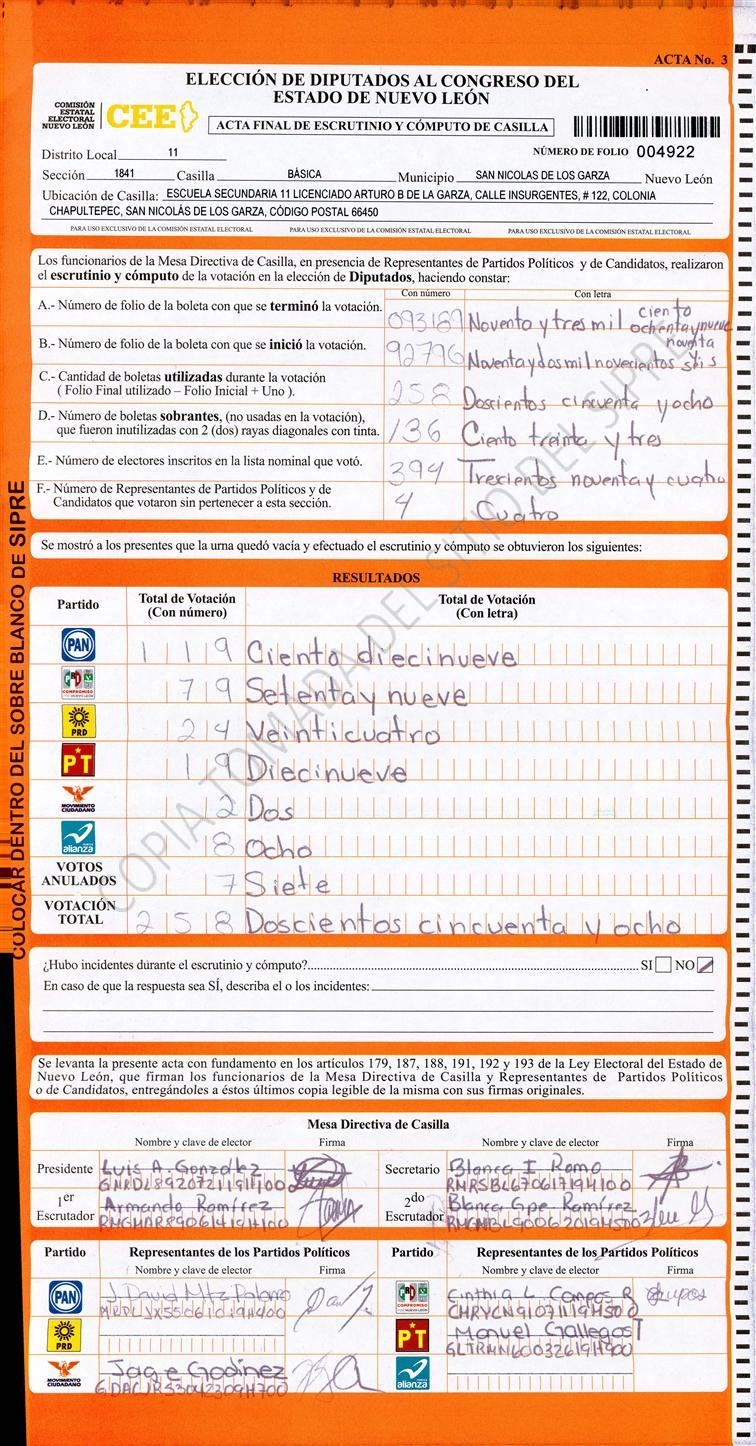 ACTA No. 3
ELECCIÓN DE DIPUTADOS AL CONGRESO DEL
ESTADO DE NUEVO LEÓN
COMISIÓN
ESTATAL
ELECTORAL
NUEVO LEÓN
CEE
ACTA FINAL DE ESCRUTINIO Y CÓMPUTO DE CASILLA
Distrito Local 11 NÚMERO DE FOLIO 004922
Sección 1841 Casilla BÁSICA Municipio SAN NICOLAS DE LOS GARZA Nuevo León
Ubicación de Casilla: ESCUELA SECUNDARIA 11 LICENCIADO ARTURO B DE LA GARZA, CALLE INSURGENTES, # 122, COLONIA
CHAPULTEPEC, SAN NICOLÁS DE LOS GARZA, CÓDIGO POSTAL 66450
PARA USO EXCLUSIVO DE LA COMISIÓN ESTATAL ELECTORAL PARA USO EXCLUSIVO DE LA COMISIÓN ESTATAL ELECTORAL PARA USO EXCLUSIVO DE LA COMISIÓN ESTATAL ELECTORAL
Los funcionarios de la Mesa Directiva de Casilla, en presencia de Representantes de Partidos Políticos y de Candidatos, realizaron
el escrutinio y cómputo de la votación en la elección de Diputados, haciendo constar:
Con número Con letra
A.- Número de folio de la boleta con que se terminó la votación. 093189 Noventa y tres mil ciento ochenta y nueve
B.- Número de folio de la boleta con que se inició la votación. 92796 Noventa y dos mil novecientos noventa seis
C.- Cantidad de boletas utilizadas durante la votación
( Folio Final utilizado – Folio Inicial + Uno ). 258 Doscientos cincuenta y ocho
D.- Número de boletas sobrantes, (no usadas en la votación),
que fueron inutilizadas con 2 (dos) rayas diagonales con tinta. 136 Ciento treinta y tres
E.- Número de electores inscritos en la lista nominal que votó. 394 Trescientos noventa y cuatro
F.- Número de Representantes de Partidos Políticos y de
Candidatos que votaron sin pertenecer a esta sección. 4 Cuatro
Se mostró a los presentes que la urna quedó vacía y efectuado el escrutinio y cómputo se obtuvieron los siguientes:
RESULTADOS
Partido Total de Votación (Con número) Total de Votación (Con letra)
PAN 119 Ciento diecinueve
PRI COMPROMISO POR NUEVO LEÓN 79 Setenta y nueve
PRD 24 Veinticuatro
PT 19 Diecinueve
MOVIMIENTO CIUDADANO 2 Dos
nueva alianza 8 Ocho
VOTOS ANULADOS 7 Siete
VOTACIÓN TOTAL 258 Doscientos cincuenta y ocho
¿Hubo incidentes durante el escrutinio y cómputo? SI NO
En caso de que la respuesta sea SÍ, describa el o los incidentes:
Se levanta la presente acta con fundamento en los artículos 179, 187, 188, 191, 192 y 193 de la Ley Electoral del Estado de
Nuevo León, que firman los funcionarios de la Mesa Directiva de Casilla y Representantes de Partidos Políticos
o de Candidatos, entregándoles a éstos últimos copia legible de la misma con sus firmas originales.
Mesa Directiva de Casilla
Nombre y clave de elector Firma Nombre y clave de elector Firma
Presidente Luis A. González
Secretario Blanca I Romo
1er Escrutador Armando Ramírez
2do Escrutador Blanca Gpe Ramírez
Partido Representantes de los Partidos Políticos Partido Representantes de los Partidos Políticos
Nombre y clave de elector Firma Nombre y clave de elector Firma
PAN J. David Mtz
COMPROMISO POR NUEVO LEÓN Cinthia L. Campos R
PRD
PT Manuel Gallegos T
MOVIMIENTO CIUDADANO Godinez
nueva alianza
COLOCAR DENTRO DEL SOBRE BLANCO DE SIPRE
COPIA TOMADA DEL SITIO DEL SIPRE